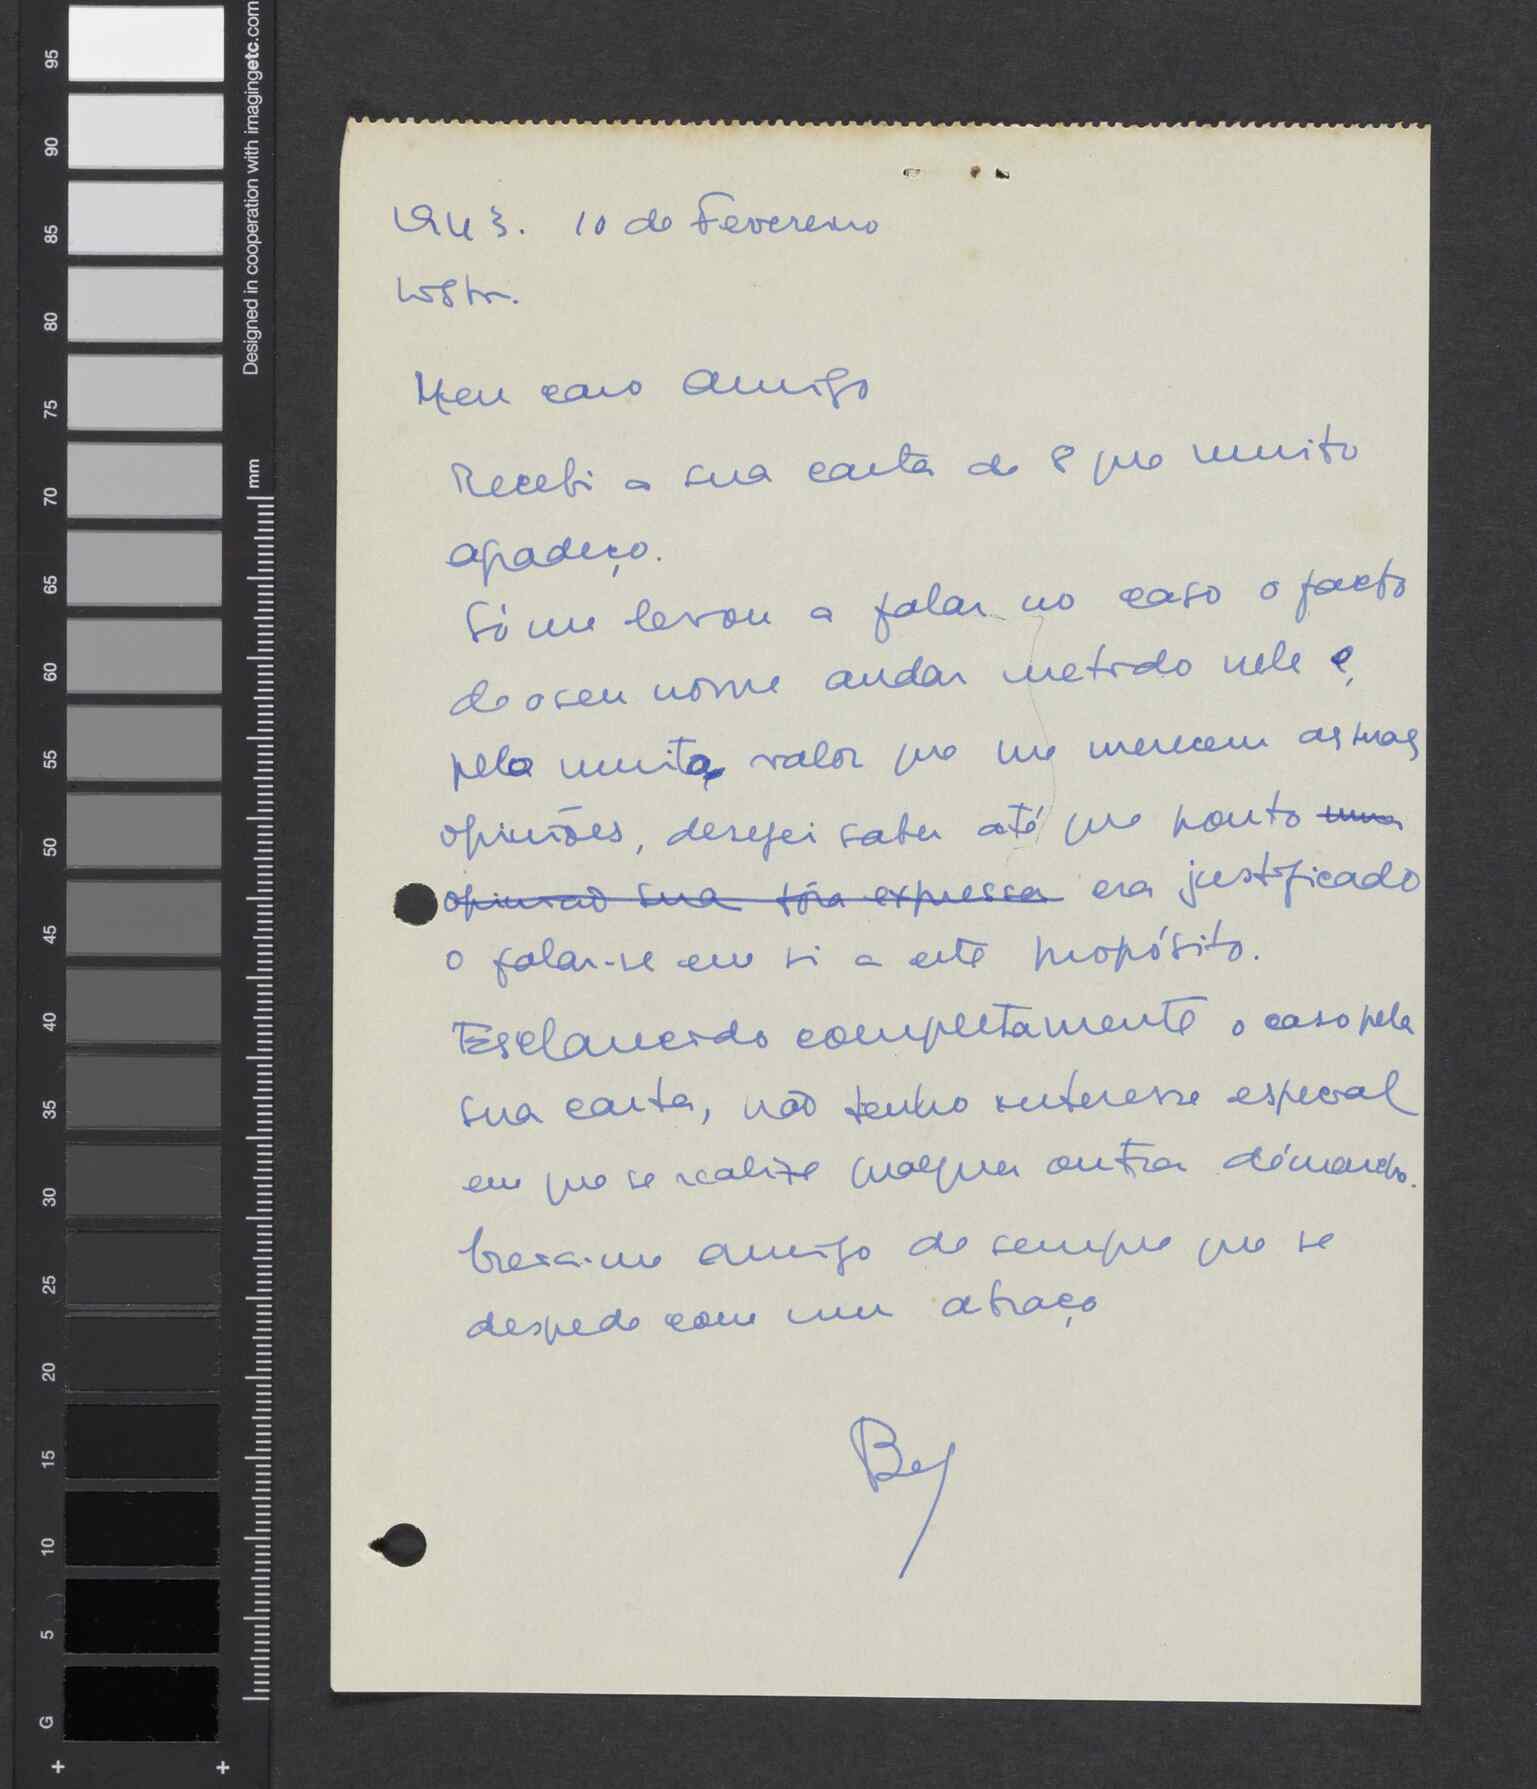 1943. 10 de Fevereiro
Lxbr.
Meu caro Amigo
Recebi a sua carta de 8 que muito
agradeço.
Só me levou a falar no caso o facto
de o seu nome andar metido nele e,
pelo muito valor que me merecem as suas
opiniões, desejei saber até que ponto uma
opinião sua fôra expressa era justificado
o falar-se em si a este propósito.
Esclarecido completamente o caso pela
sua carta, não tenho interesse especial
em que se realize qualquer outra démarche.
Creia-me amigo de sempre que se
despede com um abraço
95
90
85
80
75
70
65
60
55
50
45
40
35
30
25
20
15
10
5
G
mm
Designed in cooperation with imagingetc.com